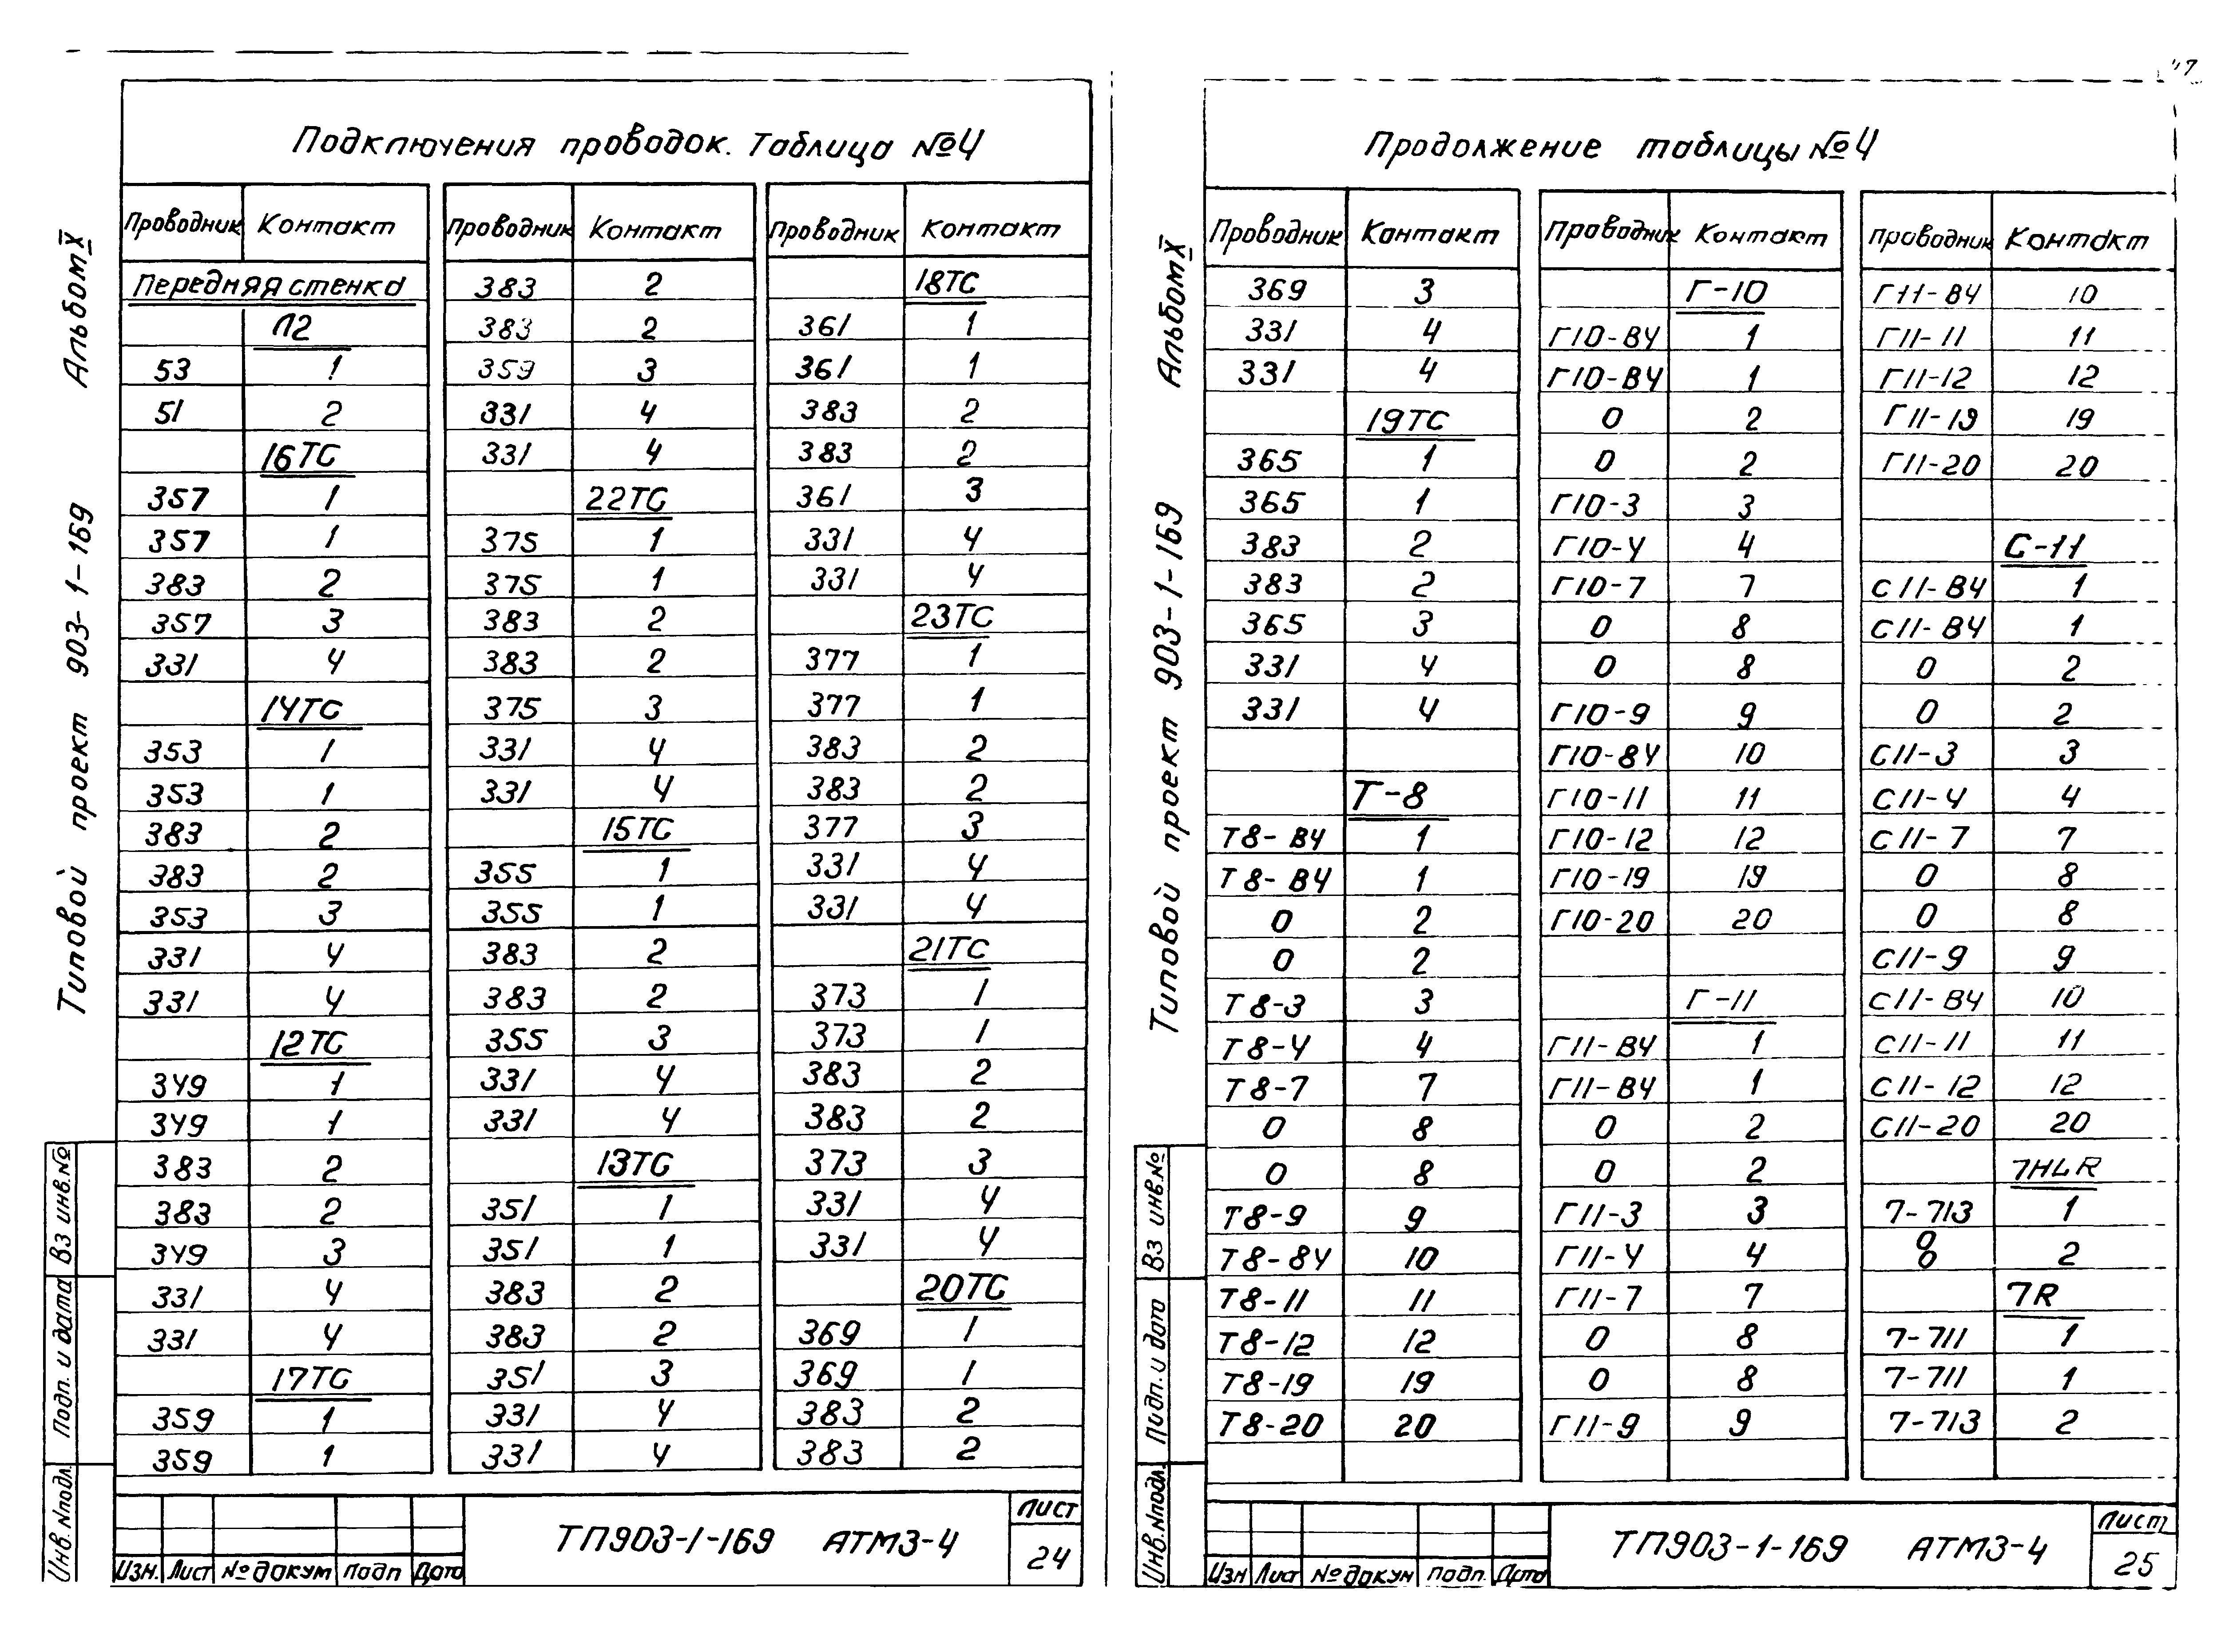 47
Подключения проводок. Таблица №4
Проводник Контакт
Передняя стенка
Л2
53 1
51 2
16ТС
357 1
357 1
383 2
357 3
331 4
14ТС
353 1
353 1
383 2
383 2
353 3
331 4
331 4
12ТС
349 1
349 1
383 2
383 2
349 3
331 4
331 4
17ТС
359 1
359 1
Проводник Контакт
383 2
383 2
359 3
331 4
331 4
22ТС
375 1
375 1
383 2
383 2
375 3
331 4
331 4
15ТС
355 1
355 1
383 2
383 2
355 3
331 4
331 4
13ТС
351 1
351 1
383 2
383 2
351 3
331 4
331 4
Проводник Контакт
18ТС
361 1
361 1
383 2
383 2
361 3
331 4
331 4
23ТС
377 1
377 1
383 2
383 2
377 3
331 4
331 4
21ТС
373 1
373 1
383 2
383 2
373 3
331 4
331 4
20ТС
369 1
369 1
383 2
383 2
Альбом X
Типовой проект 903-1-169
Вз инв.№
Подп. и дата
Инв.№подл.
Изн. Лист № докум Подп Дата
ТП903-1-169 АТМ3-4
Лист
24
Продолжение таблицы №4
Проводник Контакт
369 3
331 4
331 4
19ТС
365 1
365 1
383 2
383 2
365 3
331 4
331 4
Т-8
Т8-В4 1
Т8-В4 1
0 2
0 2
Т8-3 3
Т8-4 4
Т8-7 7
0 8
0 8
Т8-9 9
Т8-84 10
Т8-11 11
Т8-12 12
Т8-19 19
Т8-20 20
Проводник Контакт
Г-10
Г10-В4 1
Г10-В4 1
0 2
0 2
Г10-3 3
Г10-4 4
Г10-7 7
0 8
0 8
Г10-9 9
Г10-84 10
Г10-11 11
Г10-12 12
Г10-19 19
Г10-20 20
Г-11
Г11-В4 1
Г11-В4 1
0 2
0 2
Г11-3 3
Г11-4 4
Г11-7 7
0 8
0 8
Г11-9 9
Проводник Контакт
Г11-В4 10
Г11-11 11
Г11-12 12
Г11-19 19
Г11-20 20
С-11
С11-В4 1
С11-В4 1
0 2
0 2
С11-3 3
С11-4 4
С11-7 7
0 8
0 8
С11-9 9
С11-В4 10
С11-11 11
С11-12 12
С11-20 20
7HLR
7-713 1
0
0 2
7R
7-711 1
7-711 1
7-713 2
Альбом X
Типовой проект 903-1-169
Вз инв.№
Подп. и дата
Инв.№подл.
Изн Лист № докум Подп. Дата
ТП903-1-169 АТМ3-4
Лист
25